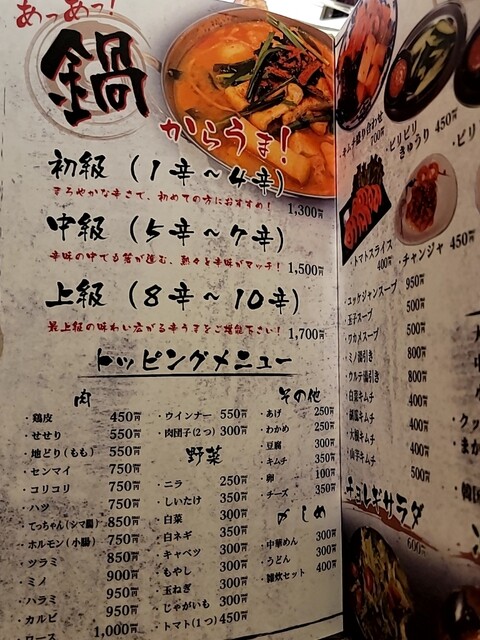 あっあっ!
鍋
からうま!
初級（1辛〜4辛）
まろやかな辛さで、初めての方におすすめ! 1,300円
中級（5辛〜7辛）
辛味の中でも箸が進む、熱々と辛味がマッチ! 1,500円
上級（8辛〜10辛）
最上級の味わい広がる辛うまをご堪能下さい! 1,700円
トッピングメニュー
肉
・鶏皮 450円
・せせり 550円
・地どり(もも) 550円
・センマイ 750円
・コリコリ 750円
・ハツ 750円
・てっちゃん(シマ腸) 850円
・ホルモン(小腸) 750円
・ツラミ 850円
・ミノ 900円
・ハラミ 950円
・カルビ 950円
・ロース 1,000円
・ウインナー 550円
・肉団子(2つ) 300円
野菜
・ニラ 250円
・しいたけ 350円
・白菜 300円
・白ネギ 350円
・キャベツ 300円
・もやし 300円
・玉ねぎ 300円
・じゃがいも 300円
・トマト(1つ) 450円
その他
・あげ 250円
・わかめ 250円
・豆腐 300円
・キムチ 350円
・卵 100円
・チーズ 350円
〆しめ
・中華めん 300円
・うどん 300円
・雑炊セット 400円
・キムチ盛り合わせ 700円
・ピリピリきゅうり 450円
・ピリ
・トマトスライス 400円
・チャンジャ 450円
・ユッケジャンスープ 950円
・玉子スープ 500円
・ワカメスープ 500円
・ミノ湯引き 800円
・ウルテ湯引き 800円
・白菜キムチ 400円
・胡瓜キムチ 400円
・大根キムチ 400円
・山芋キムチ 500円
チョレギサラダ
600円